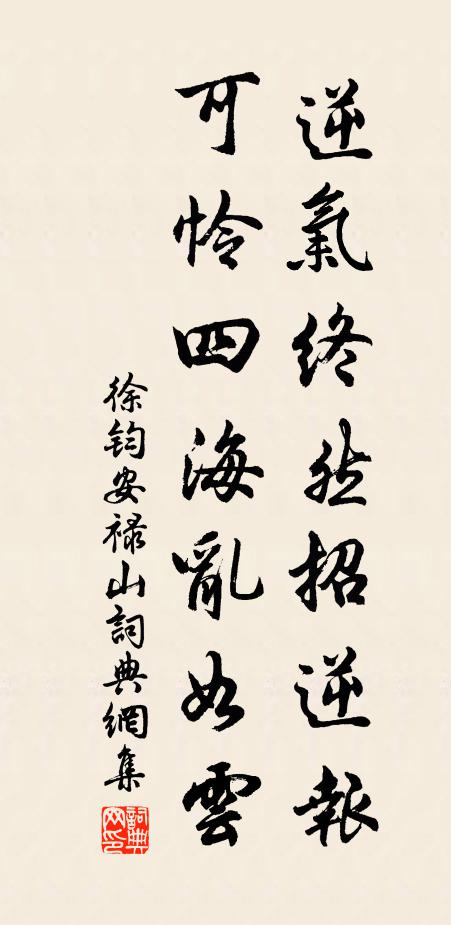 逆氣終然招逆報
可憐四海亂如雲
徐鈞安禄山詞典網集
詞典網印